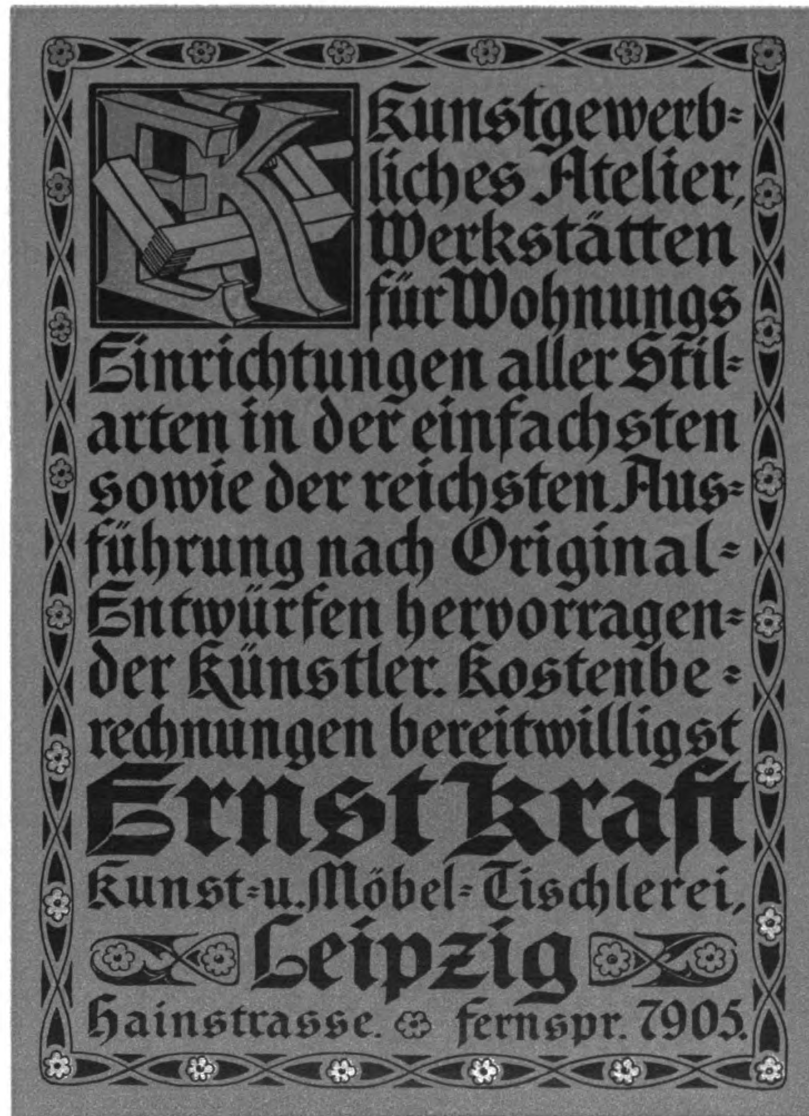 EK
Kunstgewerb=
liches Atelier,
Werkstätten
für Wohnungs
Einrichtungen aller Stil=
arten in der einfachsten
sowie der reichsten Aus=
führung nach Original=
Entwürfen hervorragen=
der Künstler. Kostenbe=
rechnungen bereitwilligst
Ernst Kraft
Kunst=u. Möbel=Tischlerei,
Leipzig
Hainstrasse. fernspr. 7905.